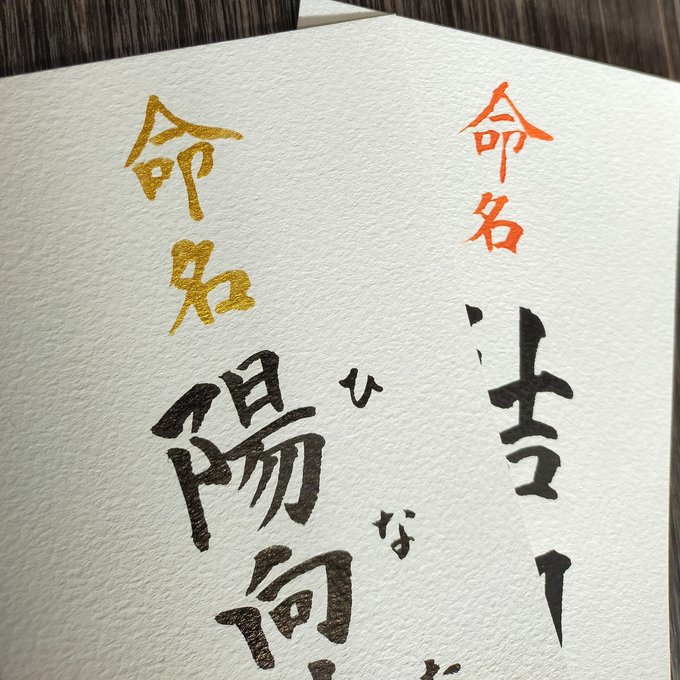 命名
陽向
ひな
命名